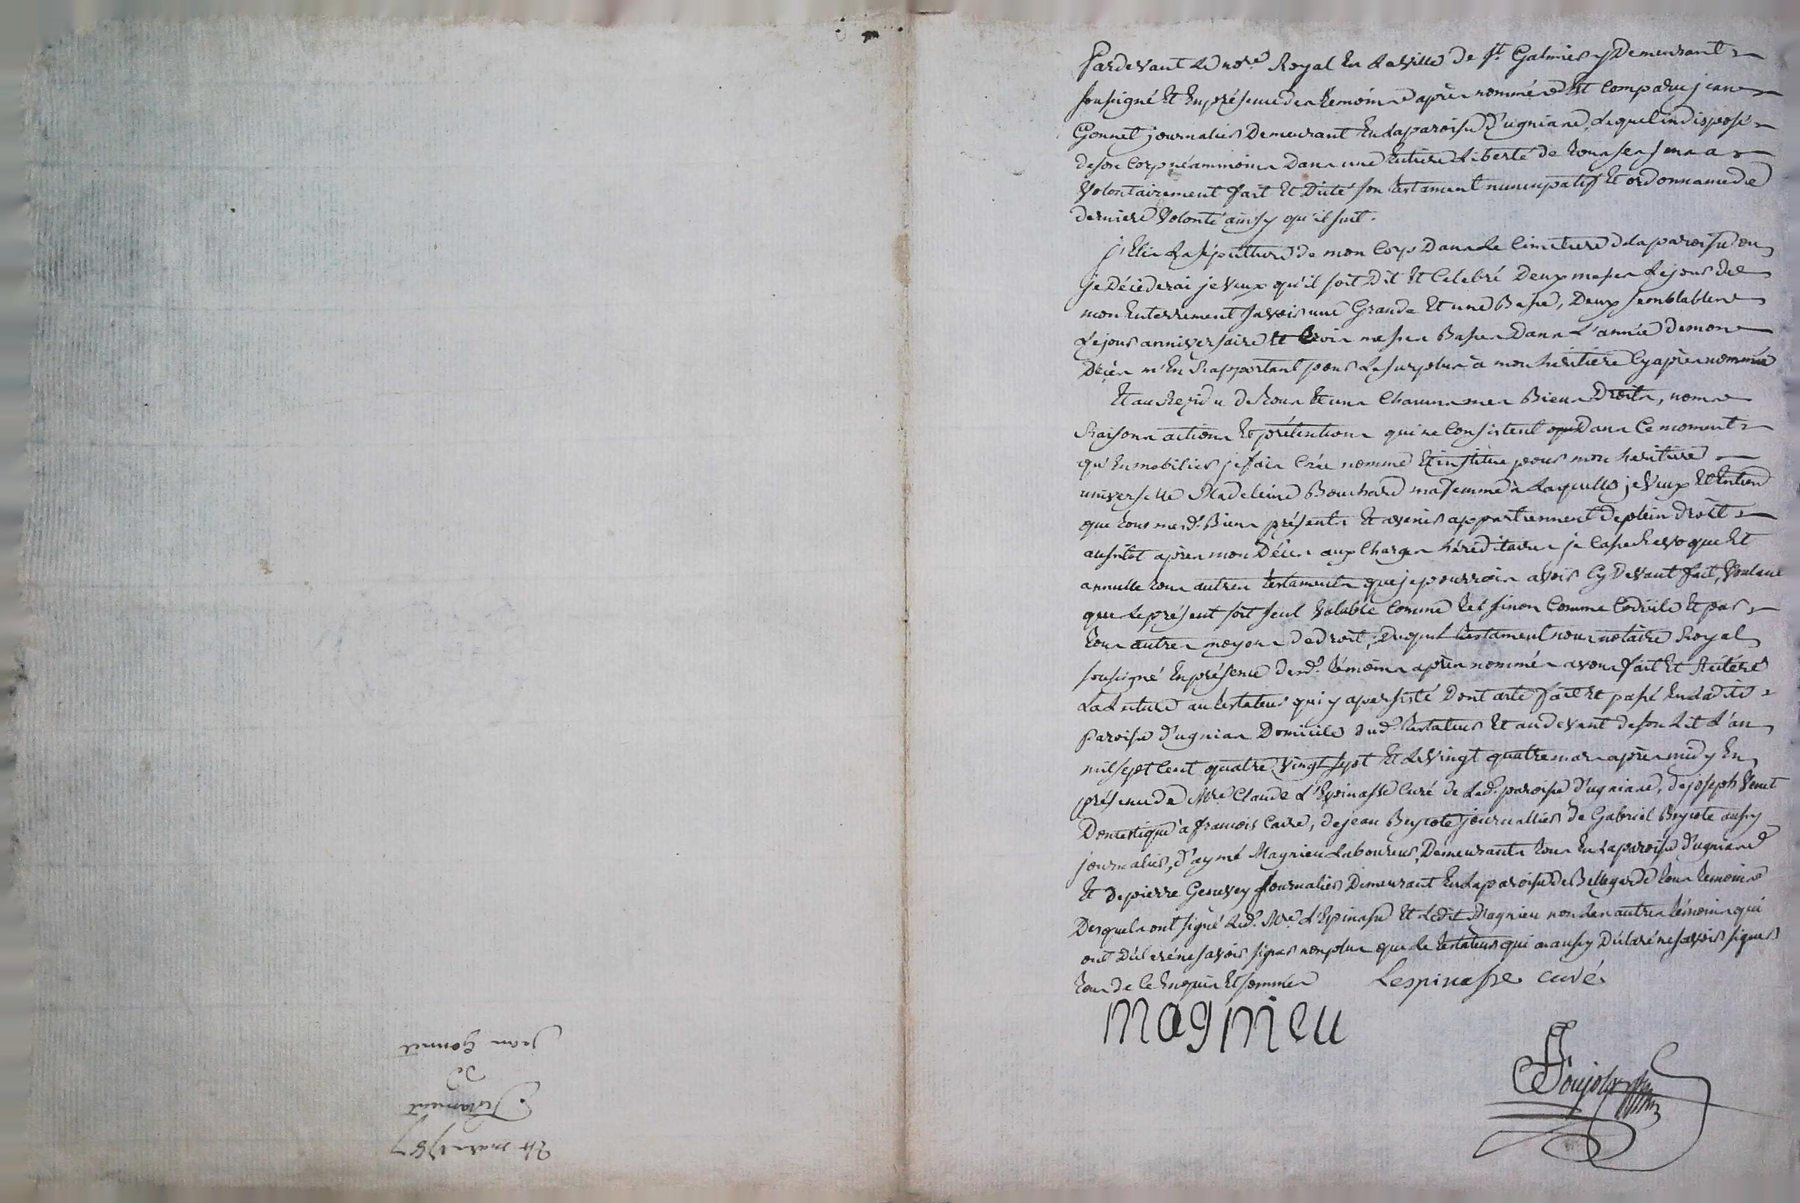 Pardevant le no.re Royal en la ville de s.t Galmier y Demeurant
soussigné et en présence des temoins après nommés Est comparu jean
Gonnet journalier Demeurant En la paroisse d'ugnias, Lequel indisposé
de son corps néammoins Dans une Entiere Liberté de tous ses sens a
volontairement fait Et Dicté son testament nuncupatif Et ordonnance de
derniere volonté ainsy qu'il suit.
j'Elis La sépulture de mon Corps Dans Le Cimetiere de la paroisse ou
je Décéderai je veux qu'il soit Dit Et Celebré Deux messes Le jour de
mon Enterrement savoir une Grande Et une Basse, Deux semblables
Le jour anniversaire Et trois messes Basses Dans L'année de mon
Décès m'En Rapportant pour Le surplus à mon héritiere Cy après nommée
Et au Rezidu de tous Et uns Chacuns mes Biens Droits, noms
Raisons actions Et prétentions qui ne Consistent Dans Ce moment
qu'En mobilier je fais Crée nomme Et institue pour mon héritiere
universelle Madeleine Bouchard ma femme à Laquelle je veux Et Entend
que tous mesd. Biens présents Et avenir appartiennent de plein droit
aussitôt après mon Décès aux Charges héréditaires je Casse Revoque Et
annulle tous autres testaments que je pourrois avoir Cy Devant fait, voulant
que Le présent soit seul valable Comme tel sinon Comme Codicile Et par
tous autres moyens de droit, Duquel testament nous notaire Royal
soussigné En présence desd. témoins après nommés avons fait Et Réitéré
La Lecture au testateur qui y a persisté Dont acte fait Et passé En ladite
paroisse d'ugnias Domicile dud. testateur Et au devant de son Lit L'an
mil sept cent quatre vingt sept Et Le vingt quatre mars après midy En
présence de M.re Claude L'Epinasse Curé de Lad. paroisse d'ugnias, de joseph Venet
Domestique à francois Caire, de jean Brycote journallier de Gabriel Brycote aussy
journalier, d'aymé Magnieu Laboureur, Demeurants tous En La paroisse d'ugnias
Et de pierre Genevey journalier Demeurant En La paroisse de Bellegarde tous temoins
Desquels ont signé Led. M.re L'Epinasse Et Ledit Magnieu non Les autres témoins qui
ont Déclaré ne savoir signer non plus que Le testateur qui a aussy Déclaré ne savoir signer
tous de Ce Enquis Et sommés
Lespinasse curé
magnieu
24 mars 1787
Testament
de
jean Gonnet